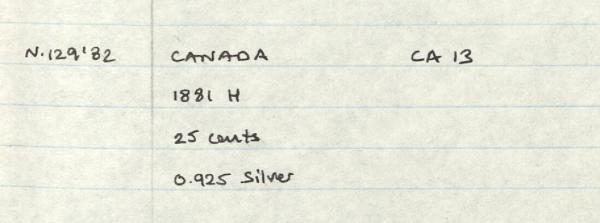 N.129'82 CANADA CA 13
1881 H
25 cents
0.925 Silver